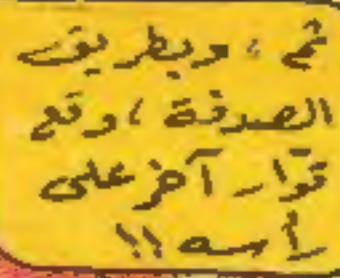 ثم ، وبطريق
الصدفة ، وقع
قرار آخر على
رأسه !!